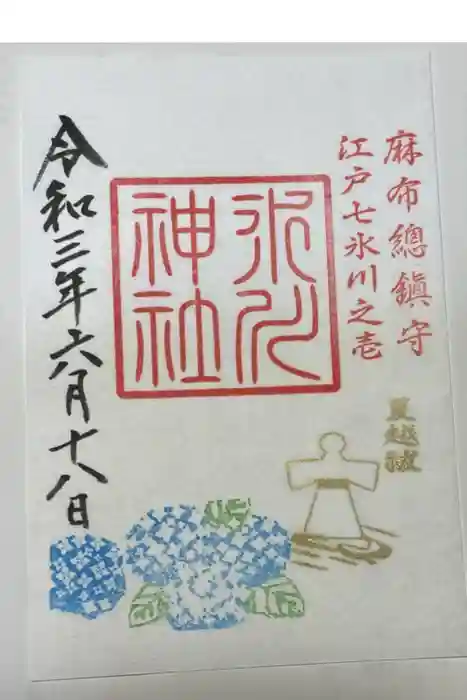 麻布總鎮守
江戸七氷川之壱
氷川
神社
夏越祓
令和三年六月十八日